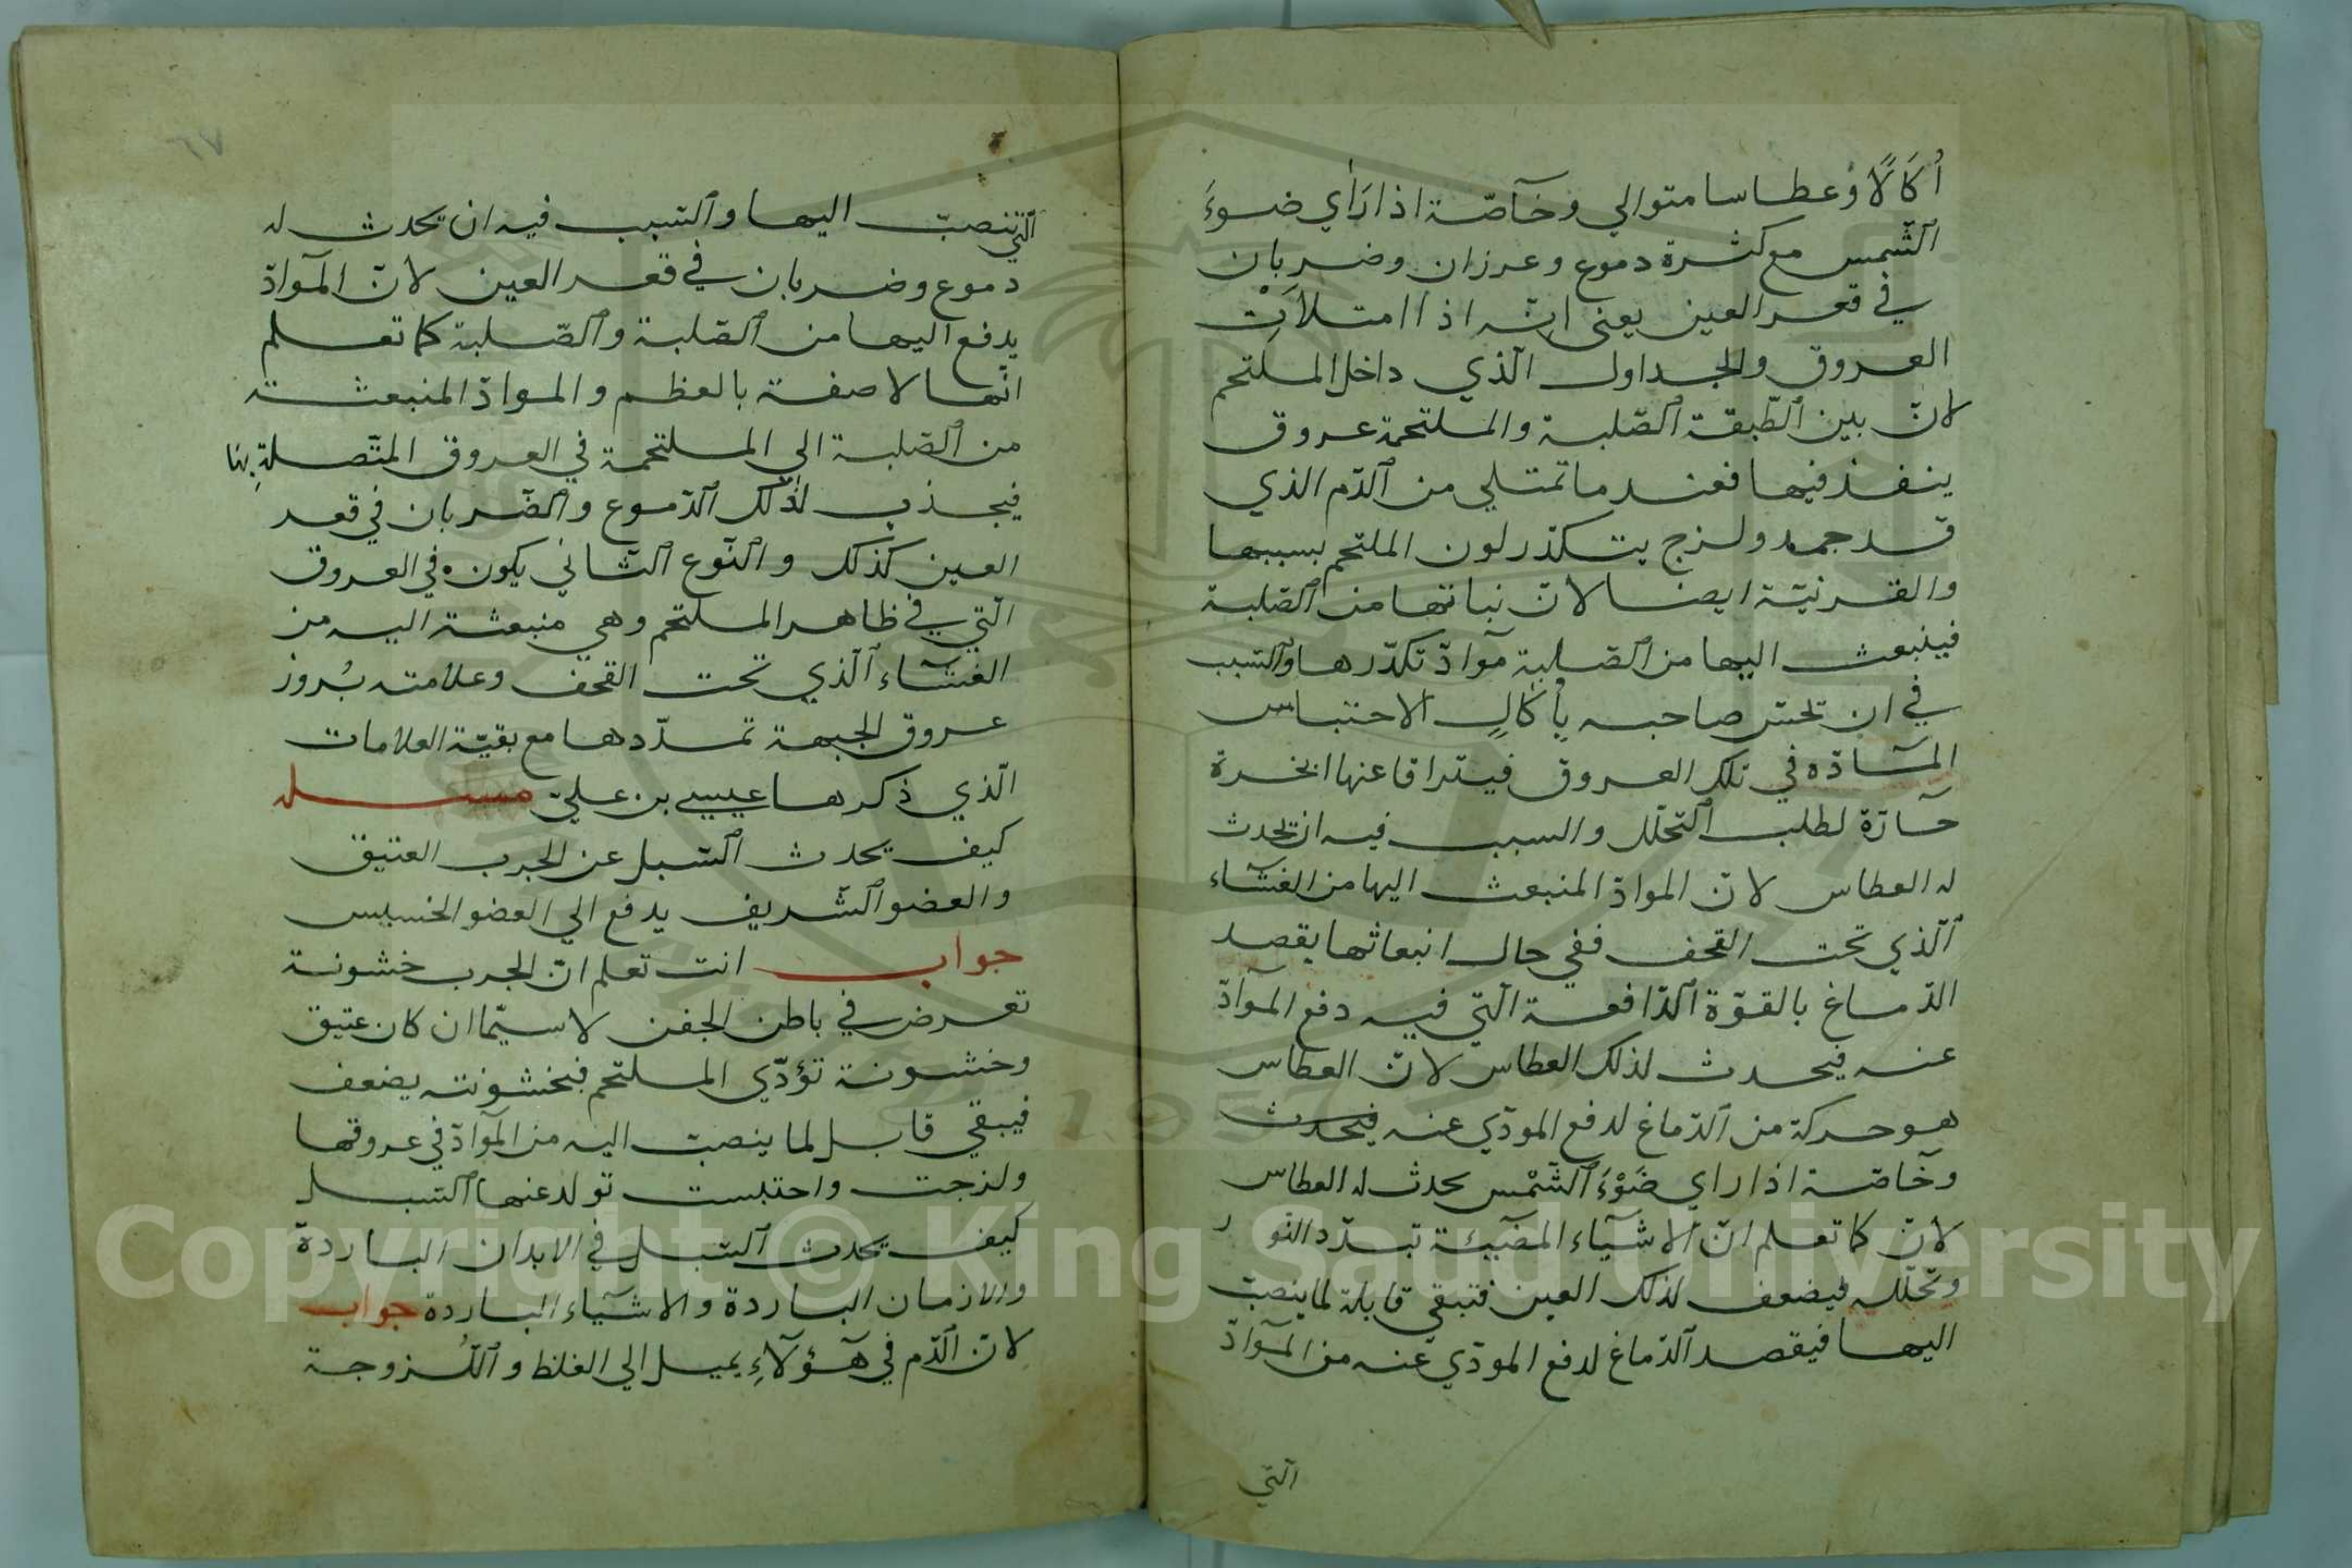 أكَالًا وعطاسا متوالي وخآصّة اذا رَأي ضوءَ
الشّمس مع كثرة دموع وعرزان وضربان
في قعر العين يعني انّه اذا امتلاَت
العروق والجداول الّذي داخل الملتحم
لانّ بين الطّبقة الصّلبة والملتحمة عروق
ينفذ فيها فعند ما تمتلي من الدّم الذي
قد جمد ولزج يتكدّر لون الملتحم بسببها
والقرنيّة ايضا لانّ نباتها من الصّلبة
فينبعث اليها من الصّلبة موآدّ تكدّرها والسّبب
في ان تحسّ صاحبه بأكالٍ الاحتباس
المآدّه في تلك العروق فيتراقا عنها ابخرة
حآرّة لطلب التّحلّل والسبب فيه ان يحدث
له العطاس لانّ الموادّ المنبعث اليها من الغشآء
الّذي تحت القحف ففي حال انبعاثها يقصد
الدّماغ بالقوّة الدّافعة الّتي فيه دفع الموآدّ
عنه فيحدث لذلك العطاس لانّ العطاس
هو حركة من الدّماغ لدفع الموذي عنه فيحدث
وخآصّة اذا راي ضَوْءَ الشّمْس يحدث له العطاس
لانّ كما تعلم انّ الاشيآء المضيئة تبدّد النّور
وتحلّله فيضعف لذلك العين فتبقي قابلة لما ينصبّ
اليها فيقصد الدّماغ لدفع الموذي عنه من الموآدّ
الّتي
٦٧
الّتي تنصبّ اليها والسّبب فيه ان يحدث له
دموع وضربان في قعر العين لانّ الموآدّ
يدفع اليها من الصّلبة والصّلبة كما تعلم
انّها لاصقة بالعظم والموادّ المنبعثة
من الصّلبة الي الملتحمة في العروق المتّصلة بها
فيجذب لذلك الدّموع والضّربان في قعر
العين كذلك والنّوع الثّاني يكون في العروق
الّتي في ظاهر الملتحم وهي منبعثة اليه من
الغشآء الّذي تحت القحف وعلامته بُروز
عروق الجبهة تمدّدها مع بقيّة العلامات
الّذي ذكرها عيسى بن عليّ مسله
كيف يحدث السّبل عن الجرب العتيق
والعضو الشّريف يدفع الي العضو الخسيس
جواب انت تعلم انّ الجرب خشونة
تعرض في باطن الجفن لا سيّما ان كان عتيق
وخشونة تؤذّي الملتحم فبخشونته يضعف
فيبقي قابل لما ينصبّ اليه من الموآدّ في عروقها
ولزجت واحتبست تولد عنها السّبل
كيف يحدث السّبل في الابدان الباردة
والازمان الباردة والاشيآء الباردة جواب
لانّ الدّم في هَؤلآءِ يميل الي الغلظ واللُّزوجة
Copyright © King Saud University